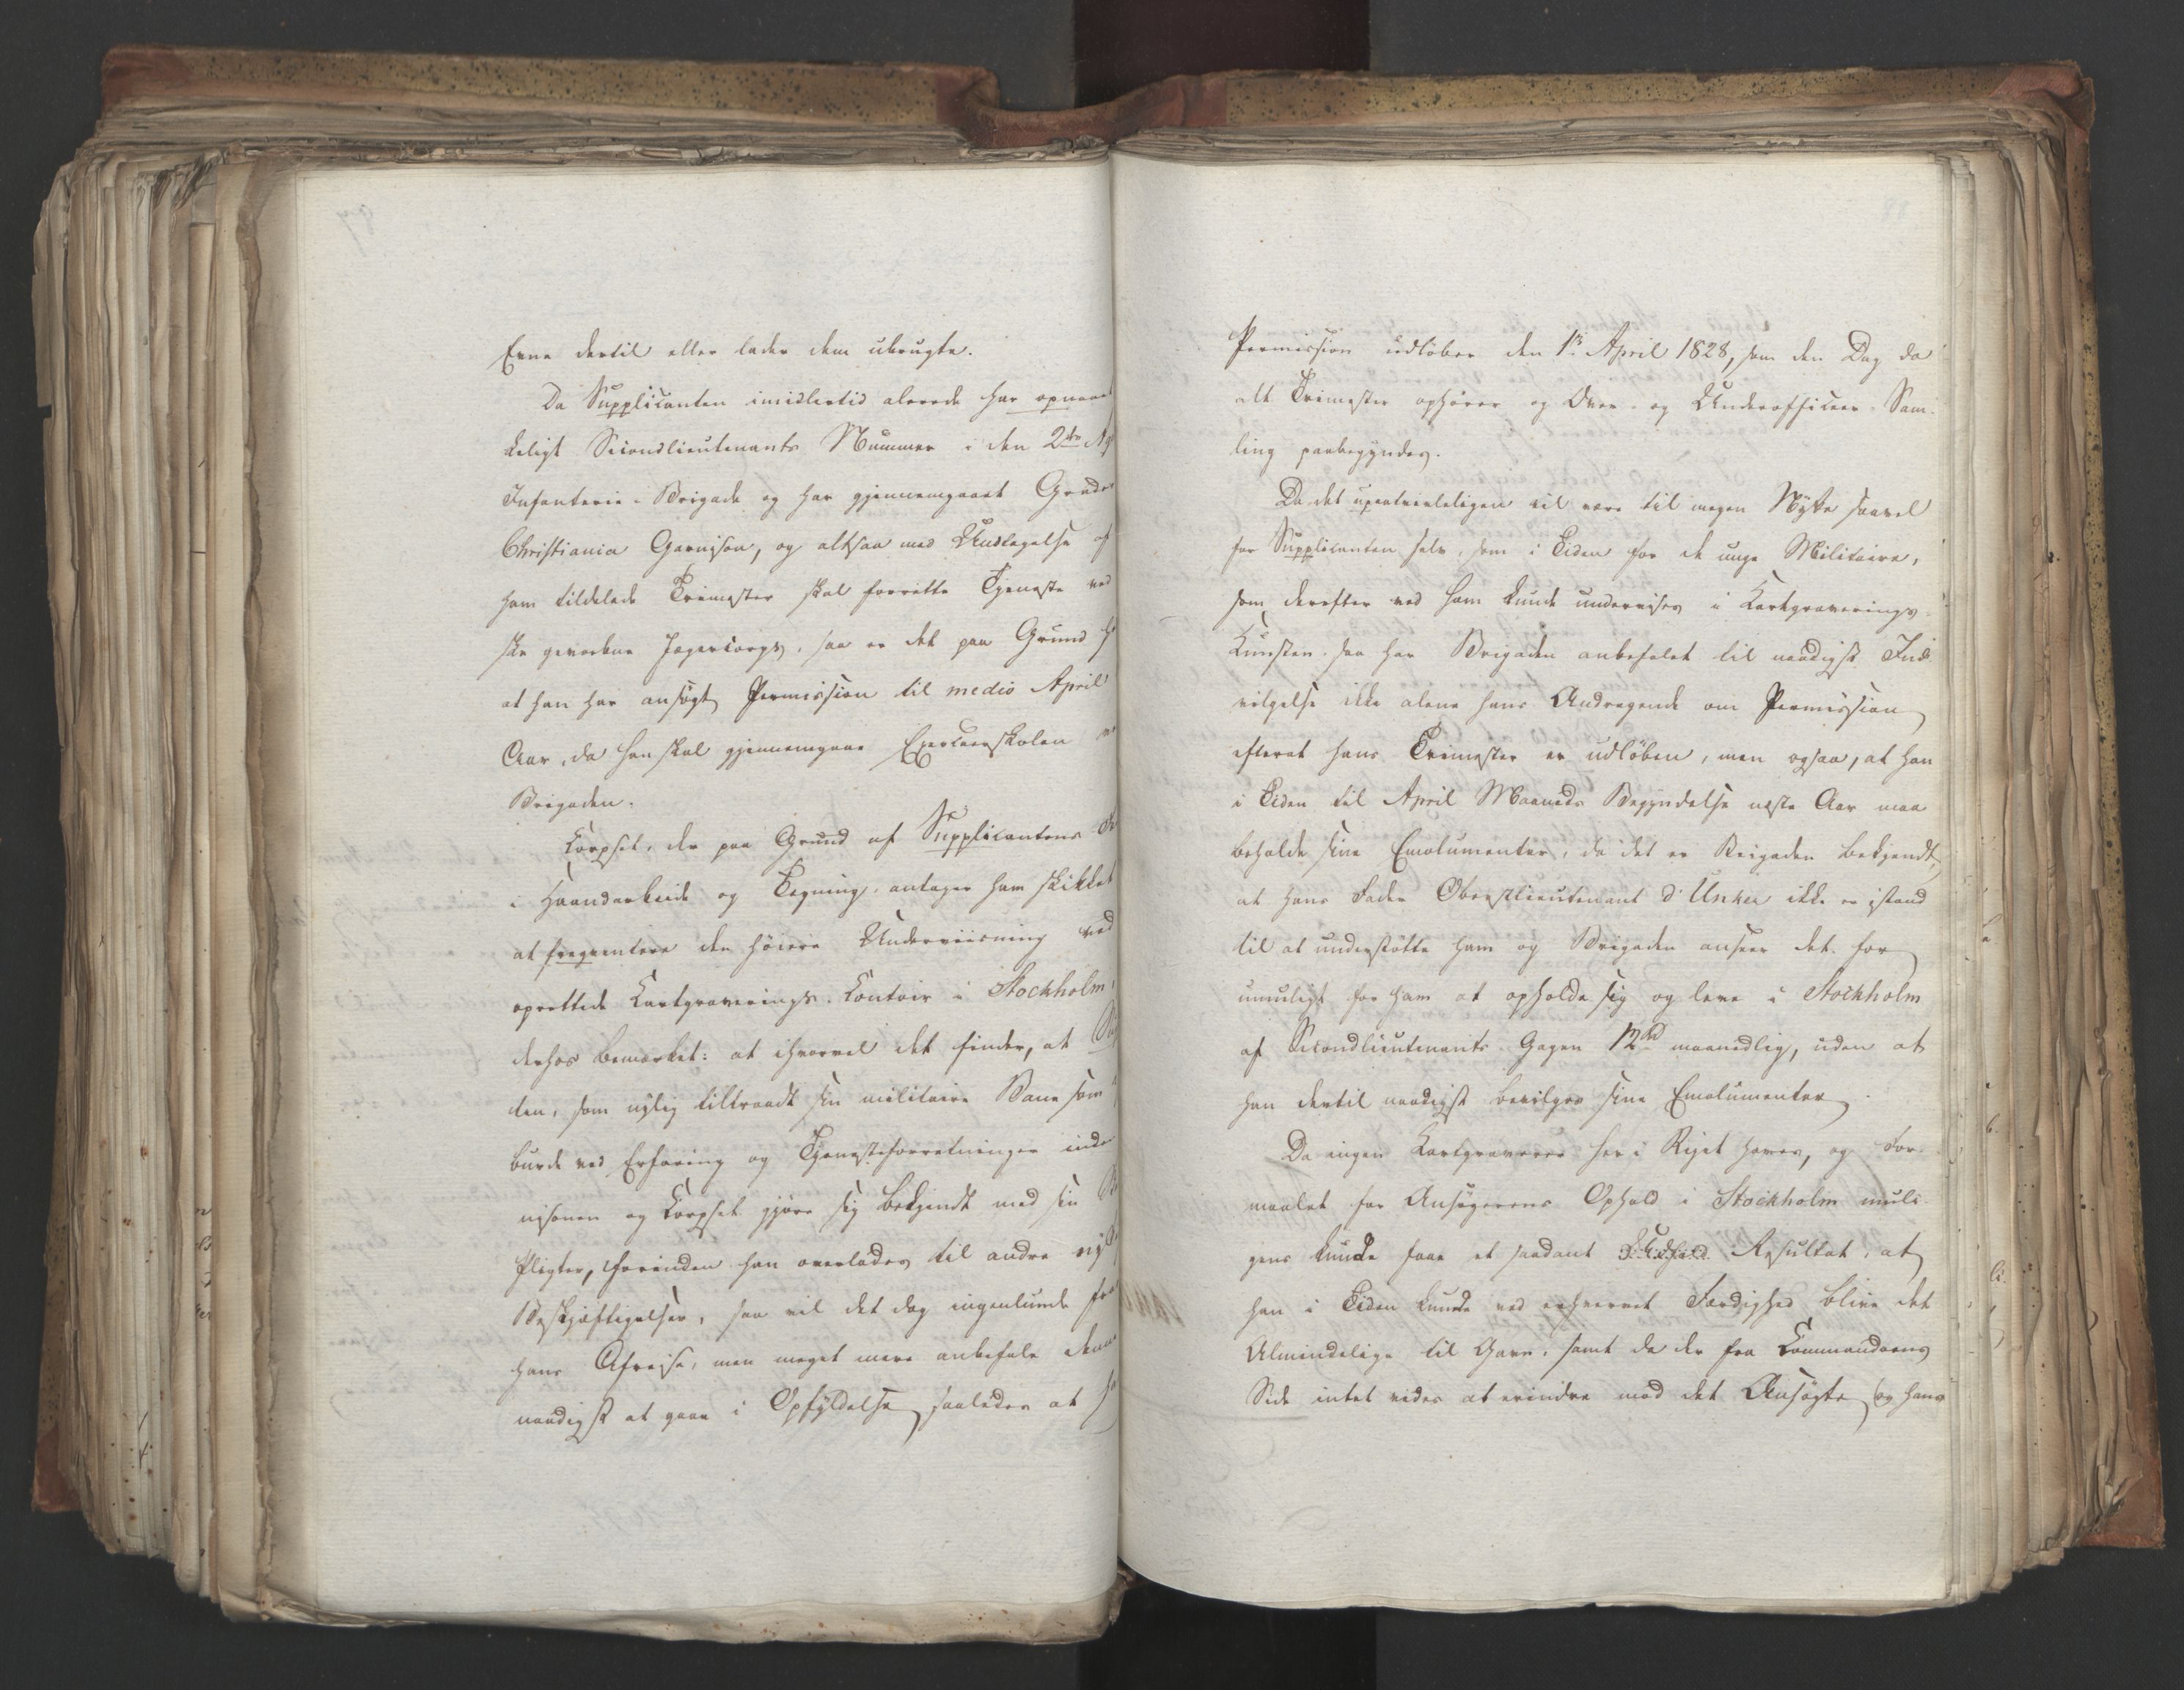 Evne dertil eller lader dem ubrugte.
Da Supplicanten imidlertid alerede har opnaaet
keligt Secondlieutenants Nummer i den 2den
Infanterie-Brigade og har gjennemgaaet Grader
Christiania Garnison, og altsaa med Undtagelse af
ham tildelede Trimester skal forrette Tjeneste ved
ske gevorbne Jægercorps, saa er det paa Grund
at han har ansøgt Permission til medio April
Aar, da han skal gjennemgaae Exerceerskolen
Brigaden.
Corpset, der paa Grund af Supplicantens
i Haandarbeide og Tegning, antager ham skikket
at frequentere den høiere Underviisning ved
oprettede Kartgraverings-Contoir i Stockholm,
derhos bemærket: at ihvorvel det finder, at
ten, som nylig tiltraadt sin militaire Bane som
burde ved Erfaring og Tjenesteforretninger inden
nisonen og Corpset gjøre sig bekjendt med sin
Pligter, forinden han overlades til andre
Beskjæftigelser, saa vil det dog ingenlunde
hans Afreise, men meget mere anbefale denne
naadigst at gaae i Opfyldelse saaledes at
Permission udløber den 1ste April 1828, som den Dag da
alt Trimester ophører og Over- og Underofficeer-Sam-
ling paabegyndes.
Da det upaatvivleligen vil være til megen Nytte saavel
for Supplicanten selv, som i Tiden for de unge Militaire,
som derefter ved ham kunde undervises i Kartgraverings-
Kunsten, saa har Brigaden anbefalet til naadigst Ind-
vilgelse ikke alene hans Andragende om Permission
efterat hans Trimester er udløben, men ogsaa, at han
i Tiden til April Maaneds Begyndelse næste Aar maa
beholde sine Emolumenter, da det er Brigaden bekjendt,
at hans Fader Oberstlieutenant d'Unker ikke er istand
til at understøtte ham og Brigaden anseer det for
umuligt for ham at opholde sig og leve i Stockholm
af Secondlieutenants-Gagen 12 Sp maanedlig, uden at
han dertil naadigst bevilges sine Emolumenter.
Da ingen Kartgraverer her i Riget haves, og For-
maalet for Ansøgerens Ophold i Stockholm muli-
gens kunde faae et saadant Resultat, at
han i Tiden kunde ved erhvervet Færdighed blive det
Almindelige til Gavn, samt da der fra Commandoens
Side intet vides at erindre mod det Ansøgte, og hans